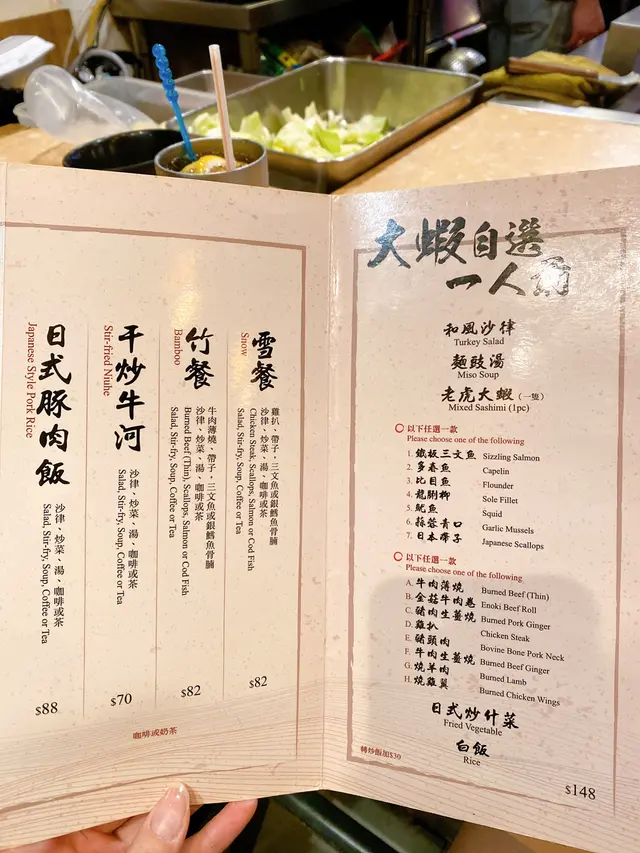 日式豚肉飯
Japanese Style Pork Rice
沙律、炒菜、湯、咖啡或茶
Salad, Stir-fry, Soup, Coffee or Tea
$88
干炒牛河
Stir-fried Niuhe
沙律、炒菜、湯、咖啡或茶
Salad, Stir-fry, Soup, Coffee or Tea
$70
竹餐
Bamboo
牛肉薄燒、帶子，三文魚或銀鱈魚骨腩
沙律、炒菜、湯、咖啡或茶
Burned Beef (Thin), Scallops, Salmon or Cod Fish
Salad, Stir-fry, Soup, Coffee or Tea
$82
雪餐
Snow
雞扒、帶子，三文魚或銀鱈魚骨腩
沙律、炒菜、湯、咖啡或茶
Chicken Steak, Scallops, Salmon or Cod Fish
Salad, Stir-fry, Soup, Coffee or Tea
$82
咖啡或奶茶
大蝦自選
一人前
和風沙律
Turkey Salad
麵豉湯
Miso Soup
老虎大蝦 (一隻)
Mixed Sashimi (1pc)
以下任選一款
Please choose one of the following
1. 鐵板三文魚 Sizzling Salmon
2. 多春魚 Capelin
3. 比目魚 Flounder
4. 龍脷柳 Sole Fillet
5. 魷魚 Squid
6. 蒜蓉青口 Garlic Mussels
7. 日本帶子 Japanese Scallops
以下任選一款
Please choose one of the following
A. 牛肉薄燒 Burned Beef (Thin)
B. 金菇牛肉卷 Enoki Beef Roll
C. 豬肉生薑燒 Burned Pork Ginger
D. 雞扒 Chicken Steak
E. 豬頸肉 Bovine Bone Pork Neck
F. 牛肉生薑燒 Burned Beef Ginger
G. 燒羊肉 Burned Lamb
H. 燒雞翼 Burned Chicken Wings
日式炒什菜
Fried Vegetable
白飯
Rice
轉炒飯加$30
$148